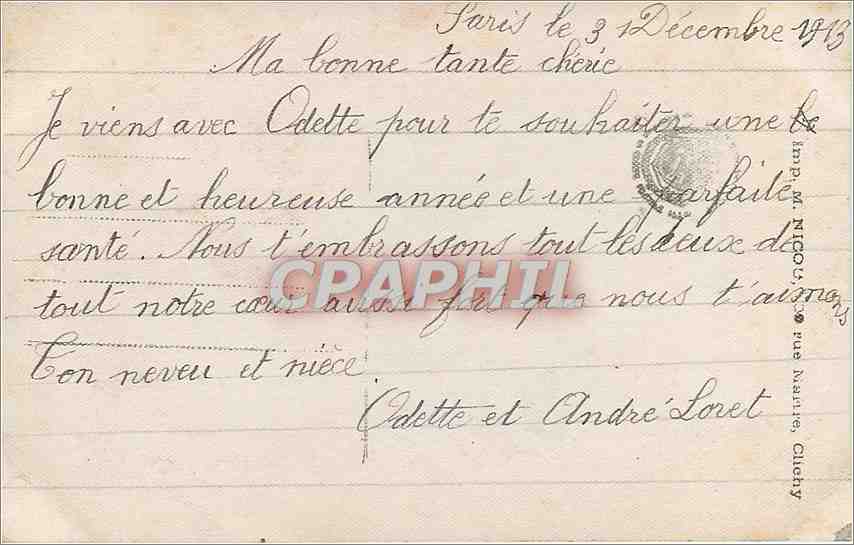 Paris le 31 Décembre 1913
Ma bonne tante chérie
Je viens avec Odette pour te souhaiter une be
bonne et heureuse année et une parfaite
santé. Nous t'embrassons tout les deux de
tout notre cœur aussi fort que nous t'aimons
Ton neveu et nièce
Odette et André Loret
CPAPHIL
Imp. M. NICO rue Martre, Clichy